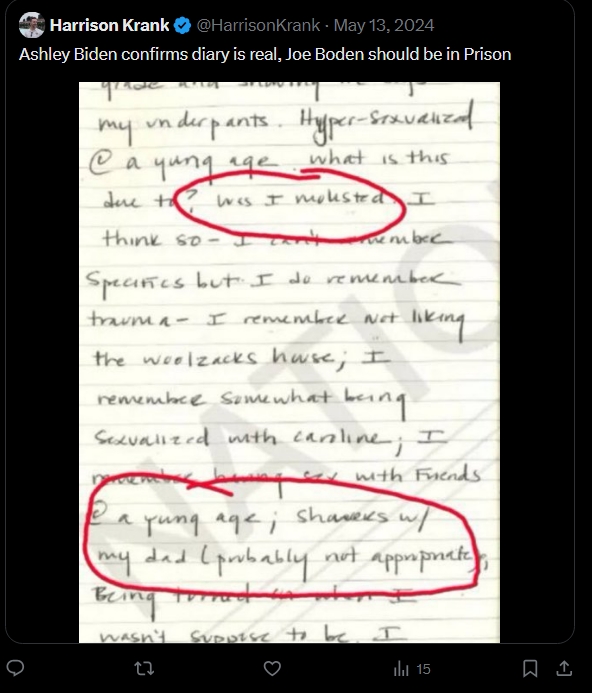 Harrison Krank @HarrisonKrank · May 13, 2024
Ashley Biden confirms diary is real, Joe Boden should be in Prison
my underpants. Hyper-sexualized
@ a yung age. what is this
due to? Was I molested. I
think so - I can't remember
specifics but I do remember
trauma - I remember not liking
the woolzacks house; I
remember somewhat being
sexualized with caroline; I
remember having sex with Friends
@ a yung age; showers w/
my dad (probably not appropriate);
Being turned on when I
wasn't suppose to be. I
NATIO
15